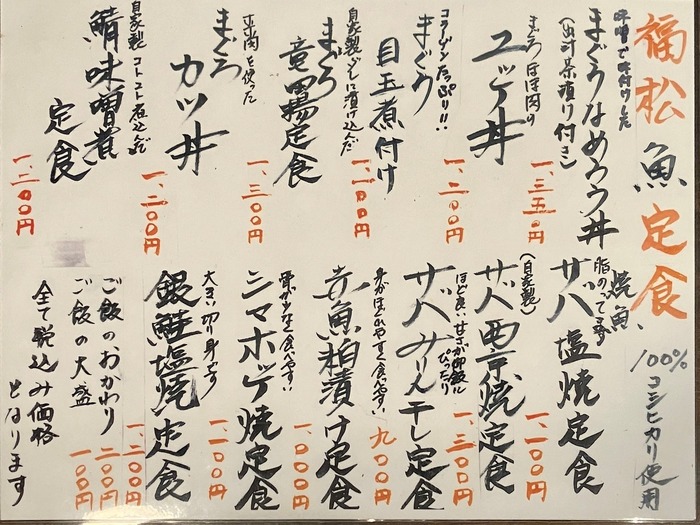 福松魚定食
100%コシヒカリ使用
味噌で味付けした
まぐろなめろう丼
(出汁茶漬け付き)
一、三五〇円
まぐろほほ肉の
ユッケ丼
一、二〇〇円
コラーゲンたっぷり!!
まぐろ
目玉煮付け
一、一〇〇円
自家製ダレに漬け込んだ
まぐろ
竜田揚定食
一、三〇〇円
赤肉を使った
まぐろ
カツ丼
一、二〇〇円
自家製コトコト煮込んだ
鯖味噌煮
定食
一、一〇〇円
焼魚
脂のってます
サバ塩焼定食
一、一〇〇円
(自家製)
サバ西京焼定食
一、三〇〇円
ほど良い甘さが御飯にぴったり
サバみりん干し定食
九〇〇円
身がほぐれやすく食べやすい
赤魚粕漬け定食
一、〇〇〇円
骨が少なく食べやすい
シマホッケ焼定食
一、一〇〇円
大きい切り身です
銀鮭塩焼定食
一、二〇〇円
ご飯の、おかわり 二〇〇円
ご飯の大盛 一〇〇円
全て税込み価格
となります